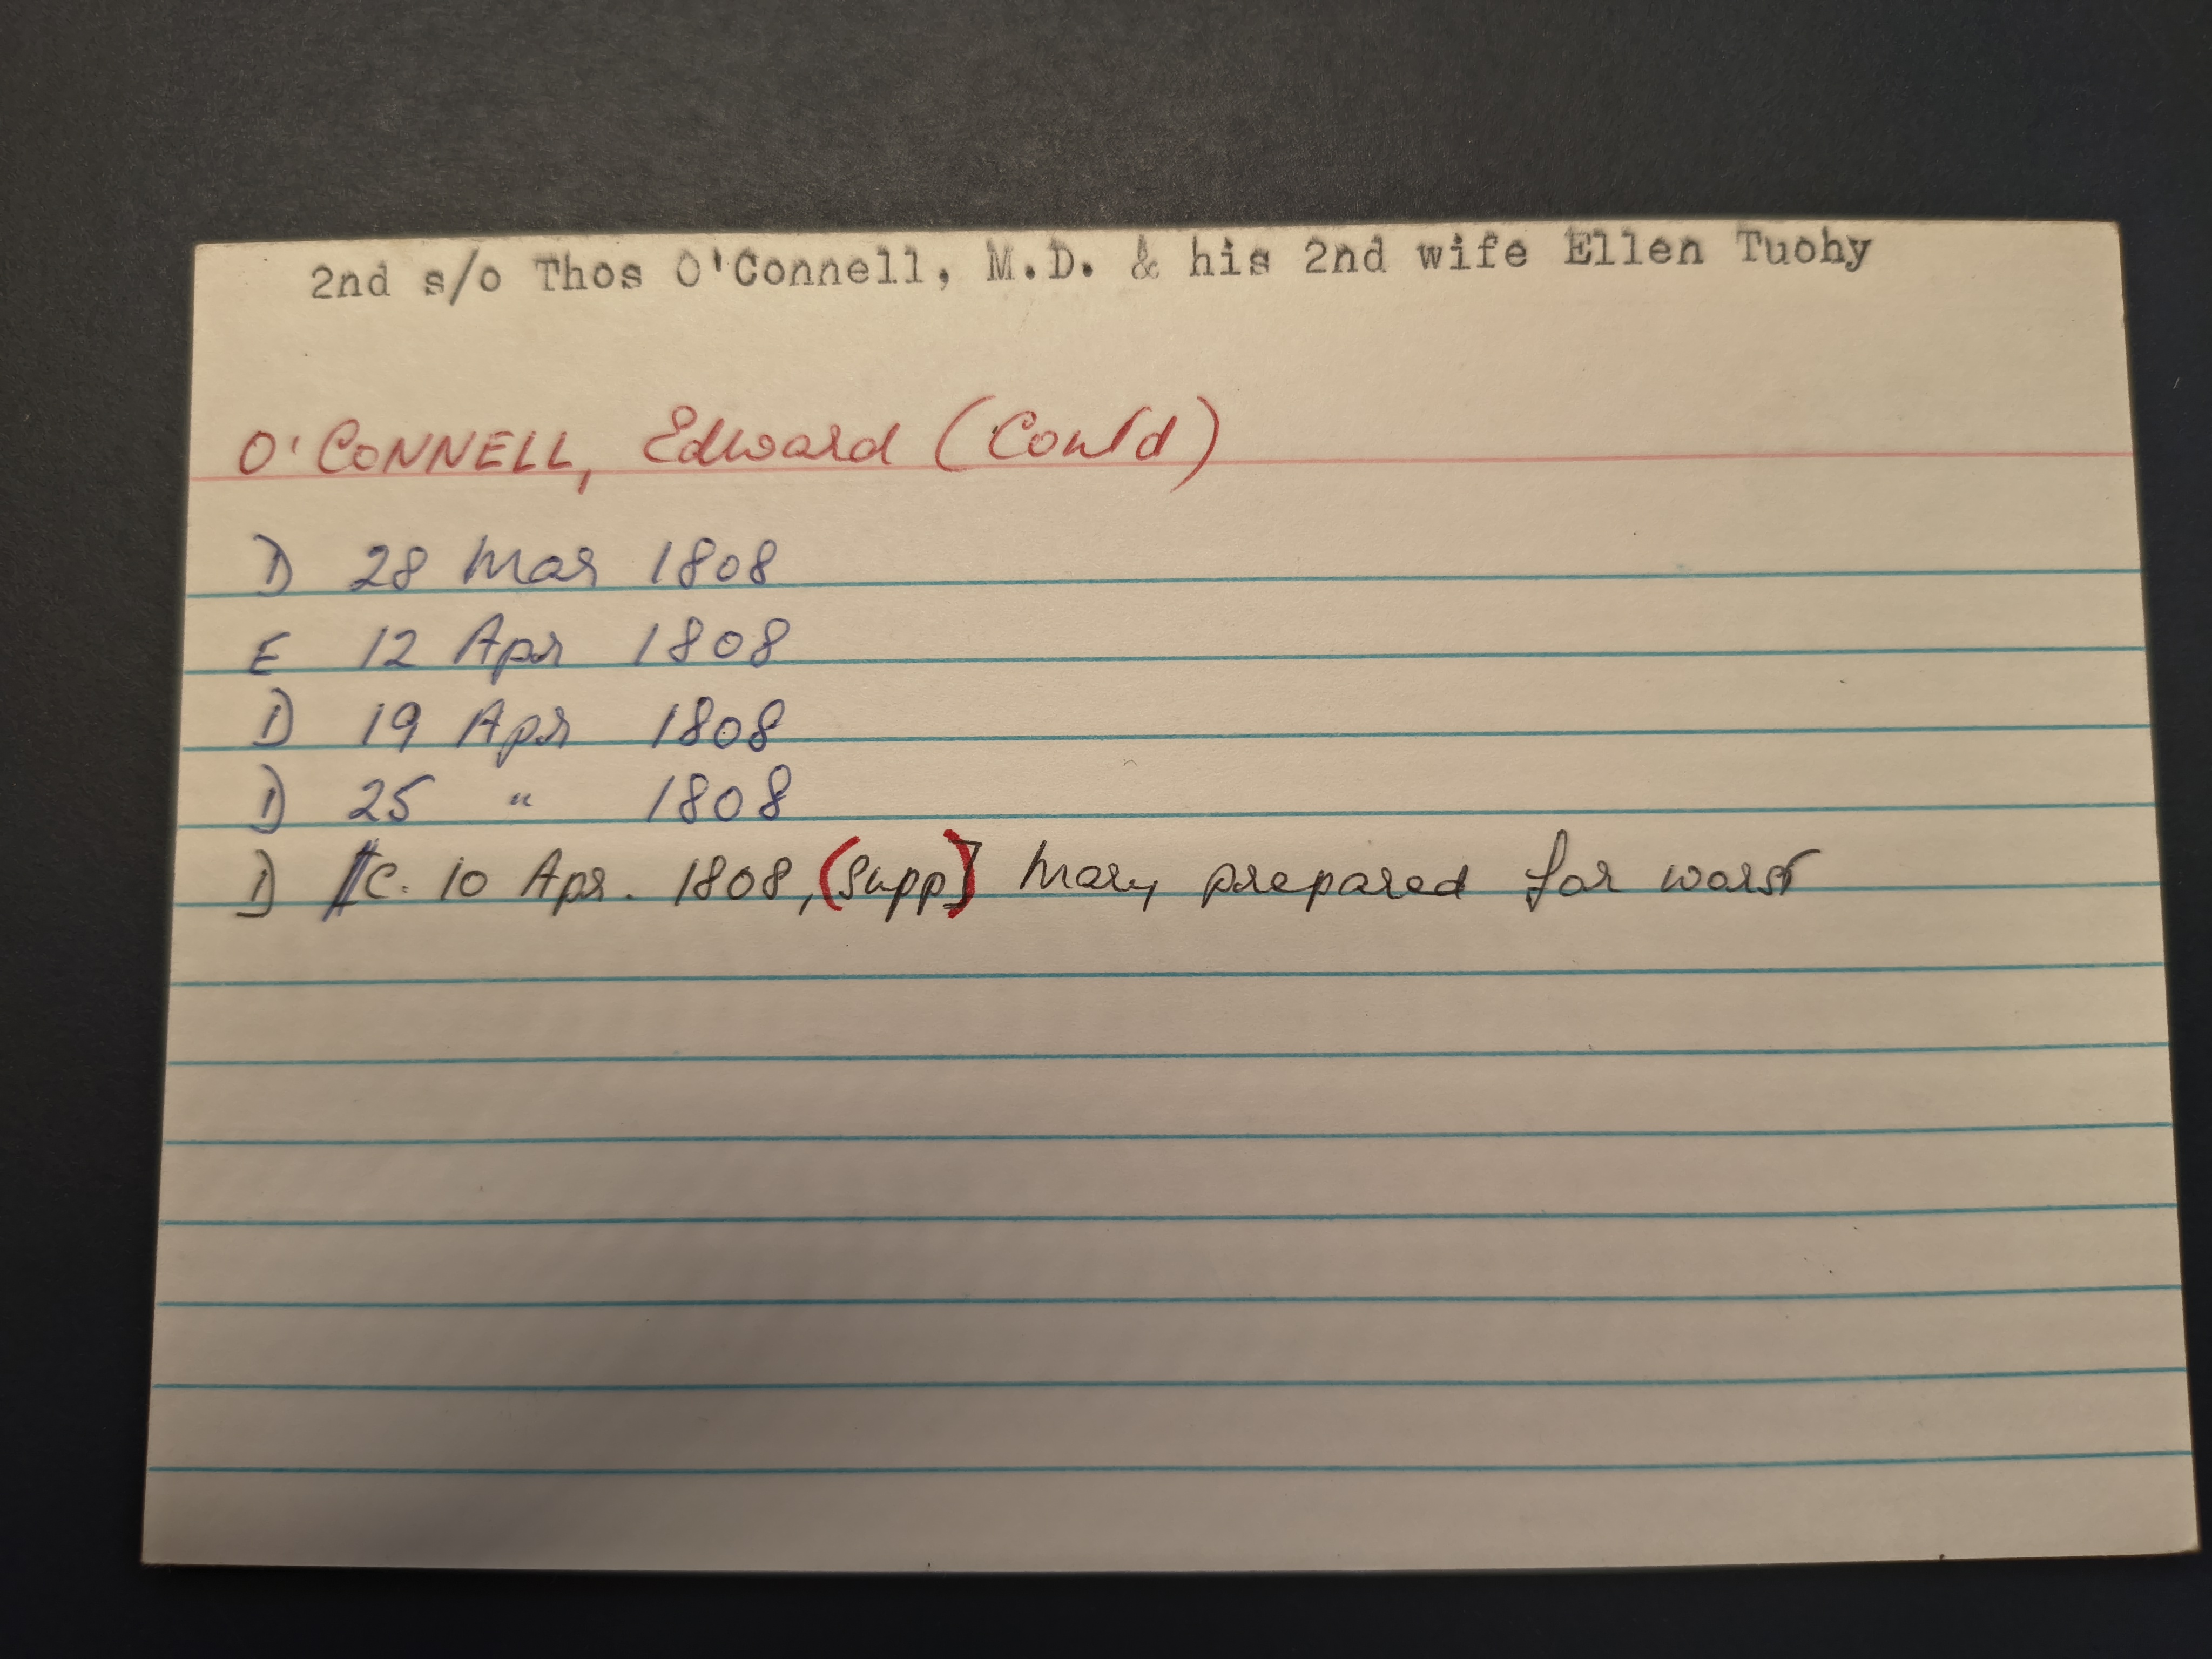 2nd s/o Thos O'Connell, M.D. & his 2nd wife Ellen Tuohy
O'CONNELL, Edward (Cont'd)
D 28 Mar 1808
E 12 Apr 1808
D 19 Apr 1808
D 25 " 1808
D [c. 10 Apr. 1808, (Supp)] Mary prepared for worst